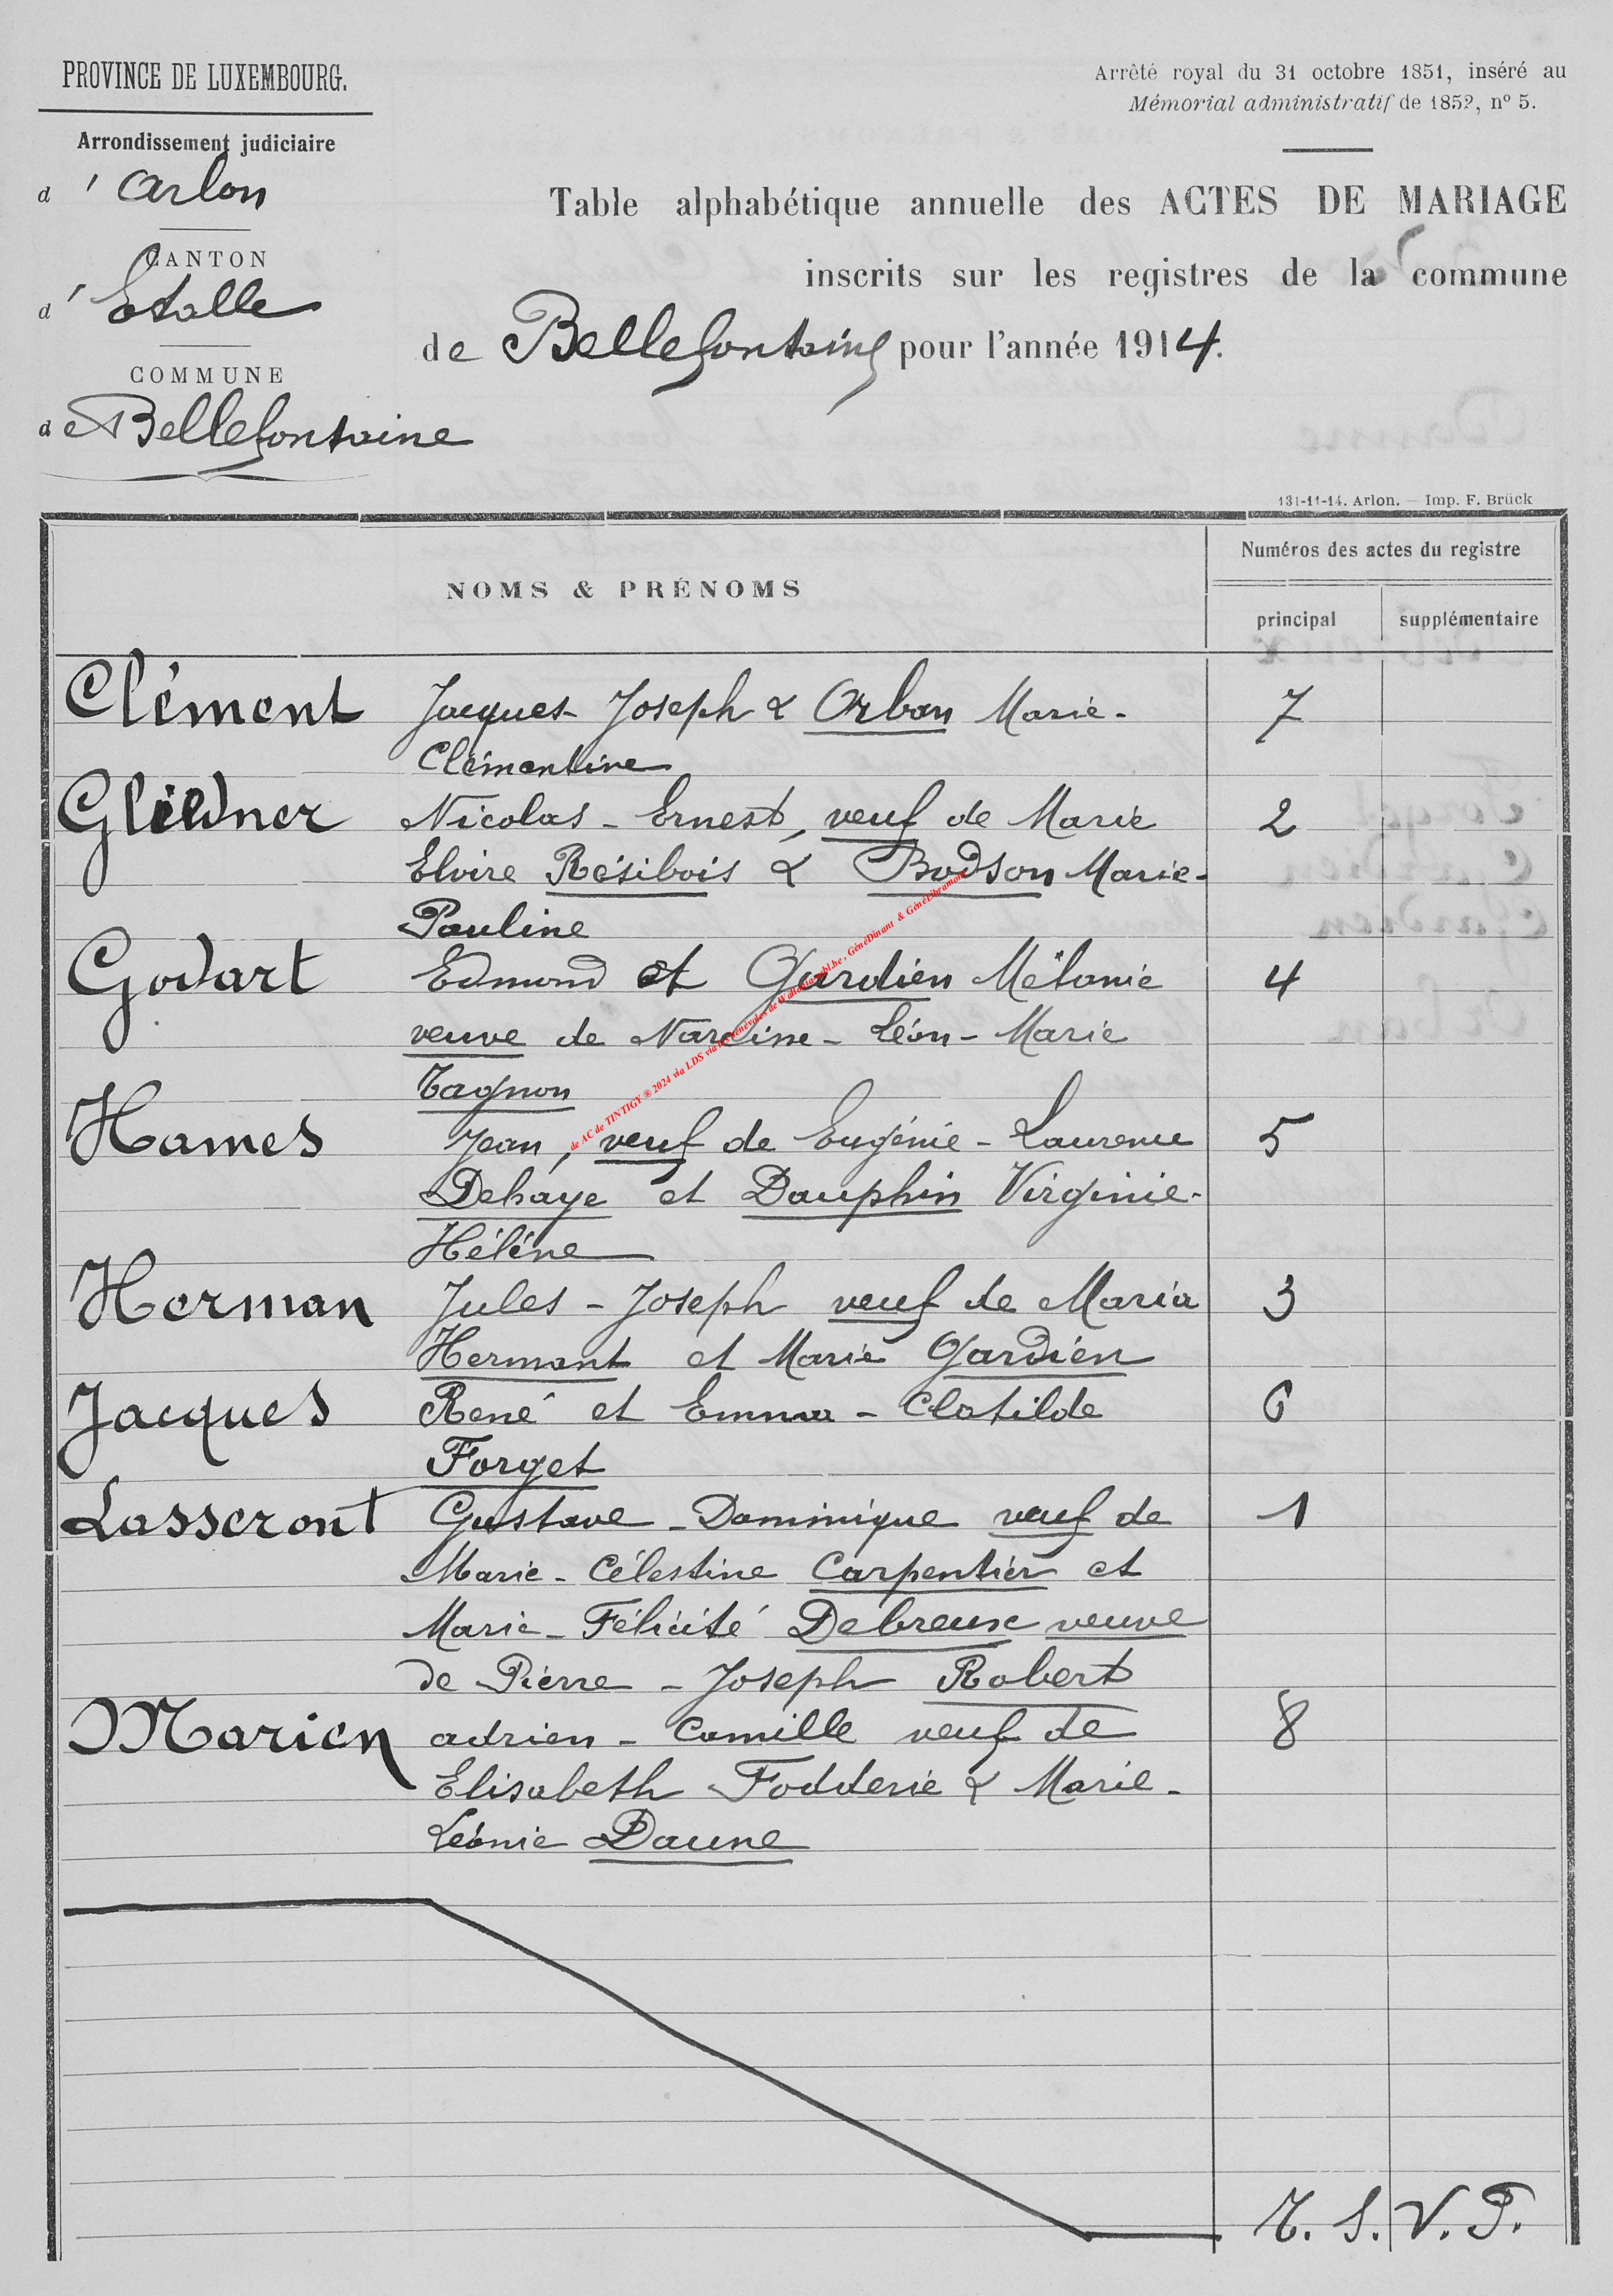 PROVINCE DE LUXEMBOURG.
Arrondissement judiciaire
d' Arlon
CANTON
d' Etalle
COMMUNE
de Bellefontaine
Arrêté royal du 31 octobre 1851, inséré au
Mémorial administratif de 1852, nº 5.
Table alphabétique annuelle des ACTES DE MARIAGE
inscrits sur les registres de la commune
de Bellefontaine pour l'année 1914.
131-11-14. Arlon. — Imp. F. Brück
NOMS & PRÉNOMS
Numéros des actes du registre
principal supplémentaire
Clément Jacques Joseph & Orban Marie- 7
Clémentine
Nicolas - Ernest, veuf de Marie 2
Elvire Résibois & Bodson Marie-
Pauline
Godart Edmond et Gardien Mélanie 4
veuve de Narcisse - Léon - Marie
Tagnon
Hames Jean, veuf de Eugénie - Laurence 5
Dehaye et Dauphin Virginie-
Hélène
Herman Jules - Joseph veuf de Maria 3
Hermant et Marie Gardien
Jacques René et Emma - Clotilde 6
Forget
Lasseront Gustave - Dominique veuf de 1
Marie - Célestine Carpentier et
Marie - Félicité Debreux veuve
de Pierre - Joseph Robert
Marien adrien - Camille veuf de 8
Elisabeth Fodderie & Marie-
Léonie Daune
T. S. V. P.
de AC de TINTIGY ® 2024 via LDS via les bénévoles de Wallonia asbl.be - GénéDinant & GénéLibramont